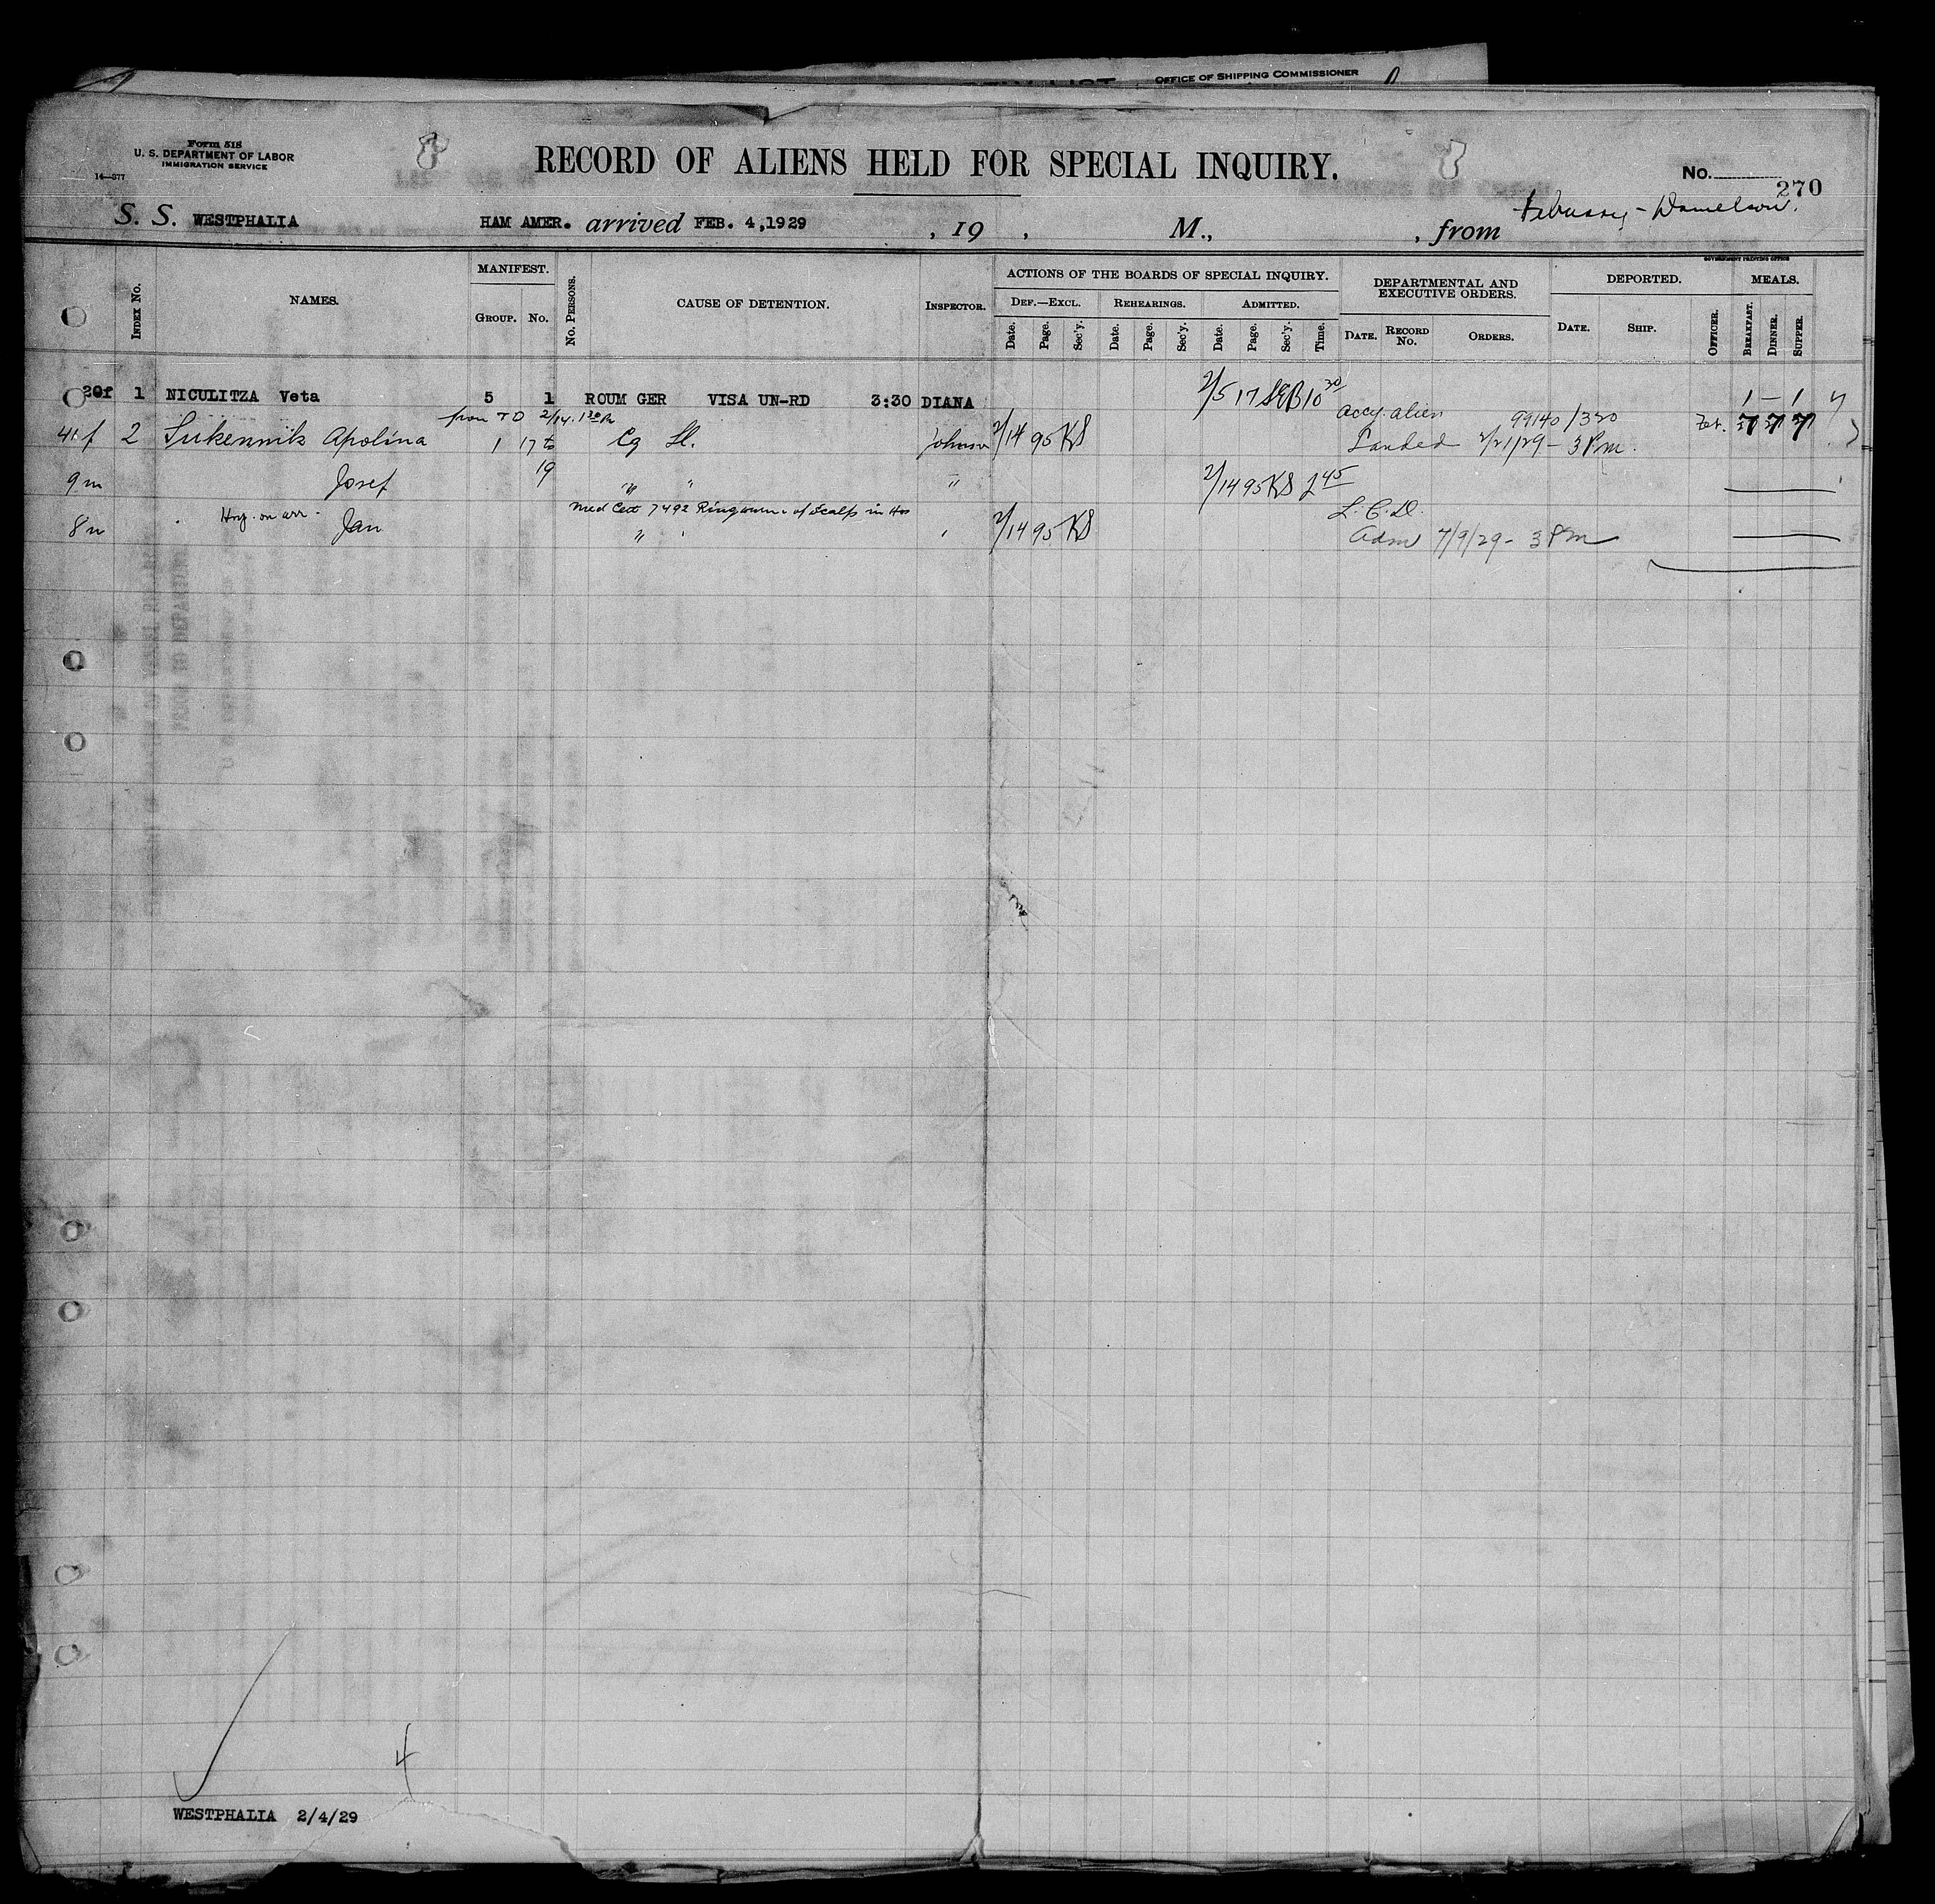 OFFICE OF SHIPPING COMMISSIONER
Form 518
U. S. DEPARTMENT OF LABOR
IMMIGRATION SERVICE
14—377
8
RECORD OF ALIENS HELD FOR SPECIAL INQUIRY.
8
No.
270
S. S. WESTPHALIA HAM AMER. arrived FEB. 4,1929 , 19 , M., , from
GOVERNMENT PRINTING OFFICE
INDEX No. NAMES. MANIFEST. GROUP. No. No. PERSONS. CAUSE OF DETENTION. INSPECTOR.
ACTIONS OF THE BOARDS OF SPECIAL INQUIRY.
DEF.—EXCL. REHEARINGS. ADMITTED.
Date. Page. Sec'y. Date. Page. Sec'y. Date. Page. Sec'y. Time.
DEPARTMENTAL AND EXECUTIVE ORDERS.
DATE. RECORD No. ORDERS.
DEPORTED.
DATE. SHIP. OFFICER.
MEALS.
BREAKFAST. DINNER. SUPPER.
20f 1 NICULITZA Veta 5 1 ROUM GER VISA UN-RD 3:30 DIANA 2/5 17 SEB 10 30 1 — 1
from T D 2/14. 1 30 accy. alien 99140/320
41 f 2 Sukennik Apolina 1 17 to Johnson 2/14 95 KS Landed 2/21/29 - 3 Pm. 7 7 7
9 m Josef 19 " " " 2/14 95 KS 2 45
Med Cert 7492 Ringworm of Scalp in Hos L. C. D.
8 m Jan " " " 2/14 95 KS Adm 7/9/29 - 3 Pm
4
WESTPHALIA 2/4/29